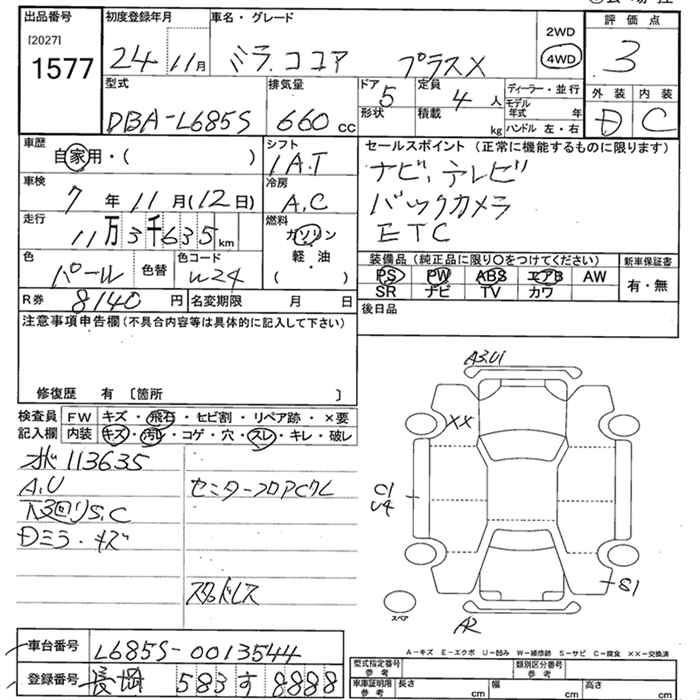 出品番号
[2027]
1577
初度登録年月
24 11月
車名・グレード
ミラ ココア プラスX
2WD
4WD
評価点
3
型式
DBA-L685S
排気量
660 cc
ドア
5
形状
定員
4 人
積載
kg
ディーラー・並行
モデル
年式 年
ハンドル 左・右
外装
内装
D
C
車歴
自家用・( )
シフト
IA.T
セールスポイント (正常に機能するものに限ります)
ナビ、テレビ
バックカメラ
ETC
車検
7 年 11 月 (12 日)
冷房
A.C
走行
11万3千635km
燃料
ガソリン
軽・油
( )
色
パール
色替
色コード
W24
装備品 (純正品に限り○をつけてください)
新車保証書
PS PW ABS エアB AW
有・無
SR ナビ TV カワ
R券
8140 円
名変期限 月 日
後日品
注意事項申告欄(不具合内容等は具体的に記入して下さい)
修復歴 有 〔箇所 〕
検査員
記入欄
FW キズ・飛石・ヒビ割・リペア跡・×要
内装 キズ・汚レ・コゲ・穴・スレ・キレ・破レ
113635
A.U
センターフロアCクレ
下回りS,C
Dミラ・キズ
スタッドレス
A3.U1
XX
C1
U4
S1
スペア
A2
車台番号
L685S-0013544
登録番号
長岡 583 す 8888
A-キズ E-エクボ U-凹み W-補修跡 S-サビ C-腐食 ××-交換済
型式指定番号
参考
類別区分番号
参考
車庫証明用
参考
長さ cm
幅 cm
高さ cm